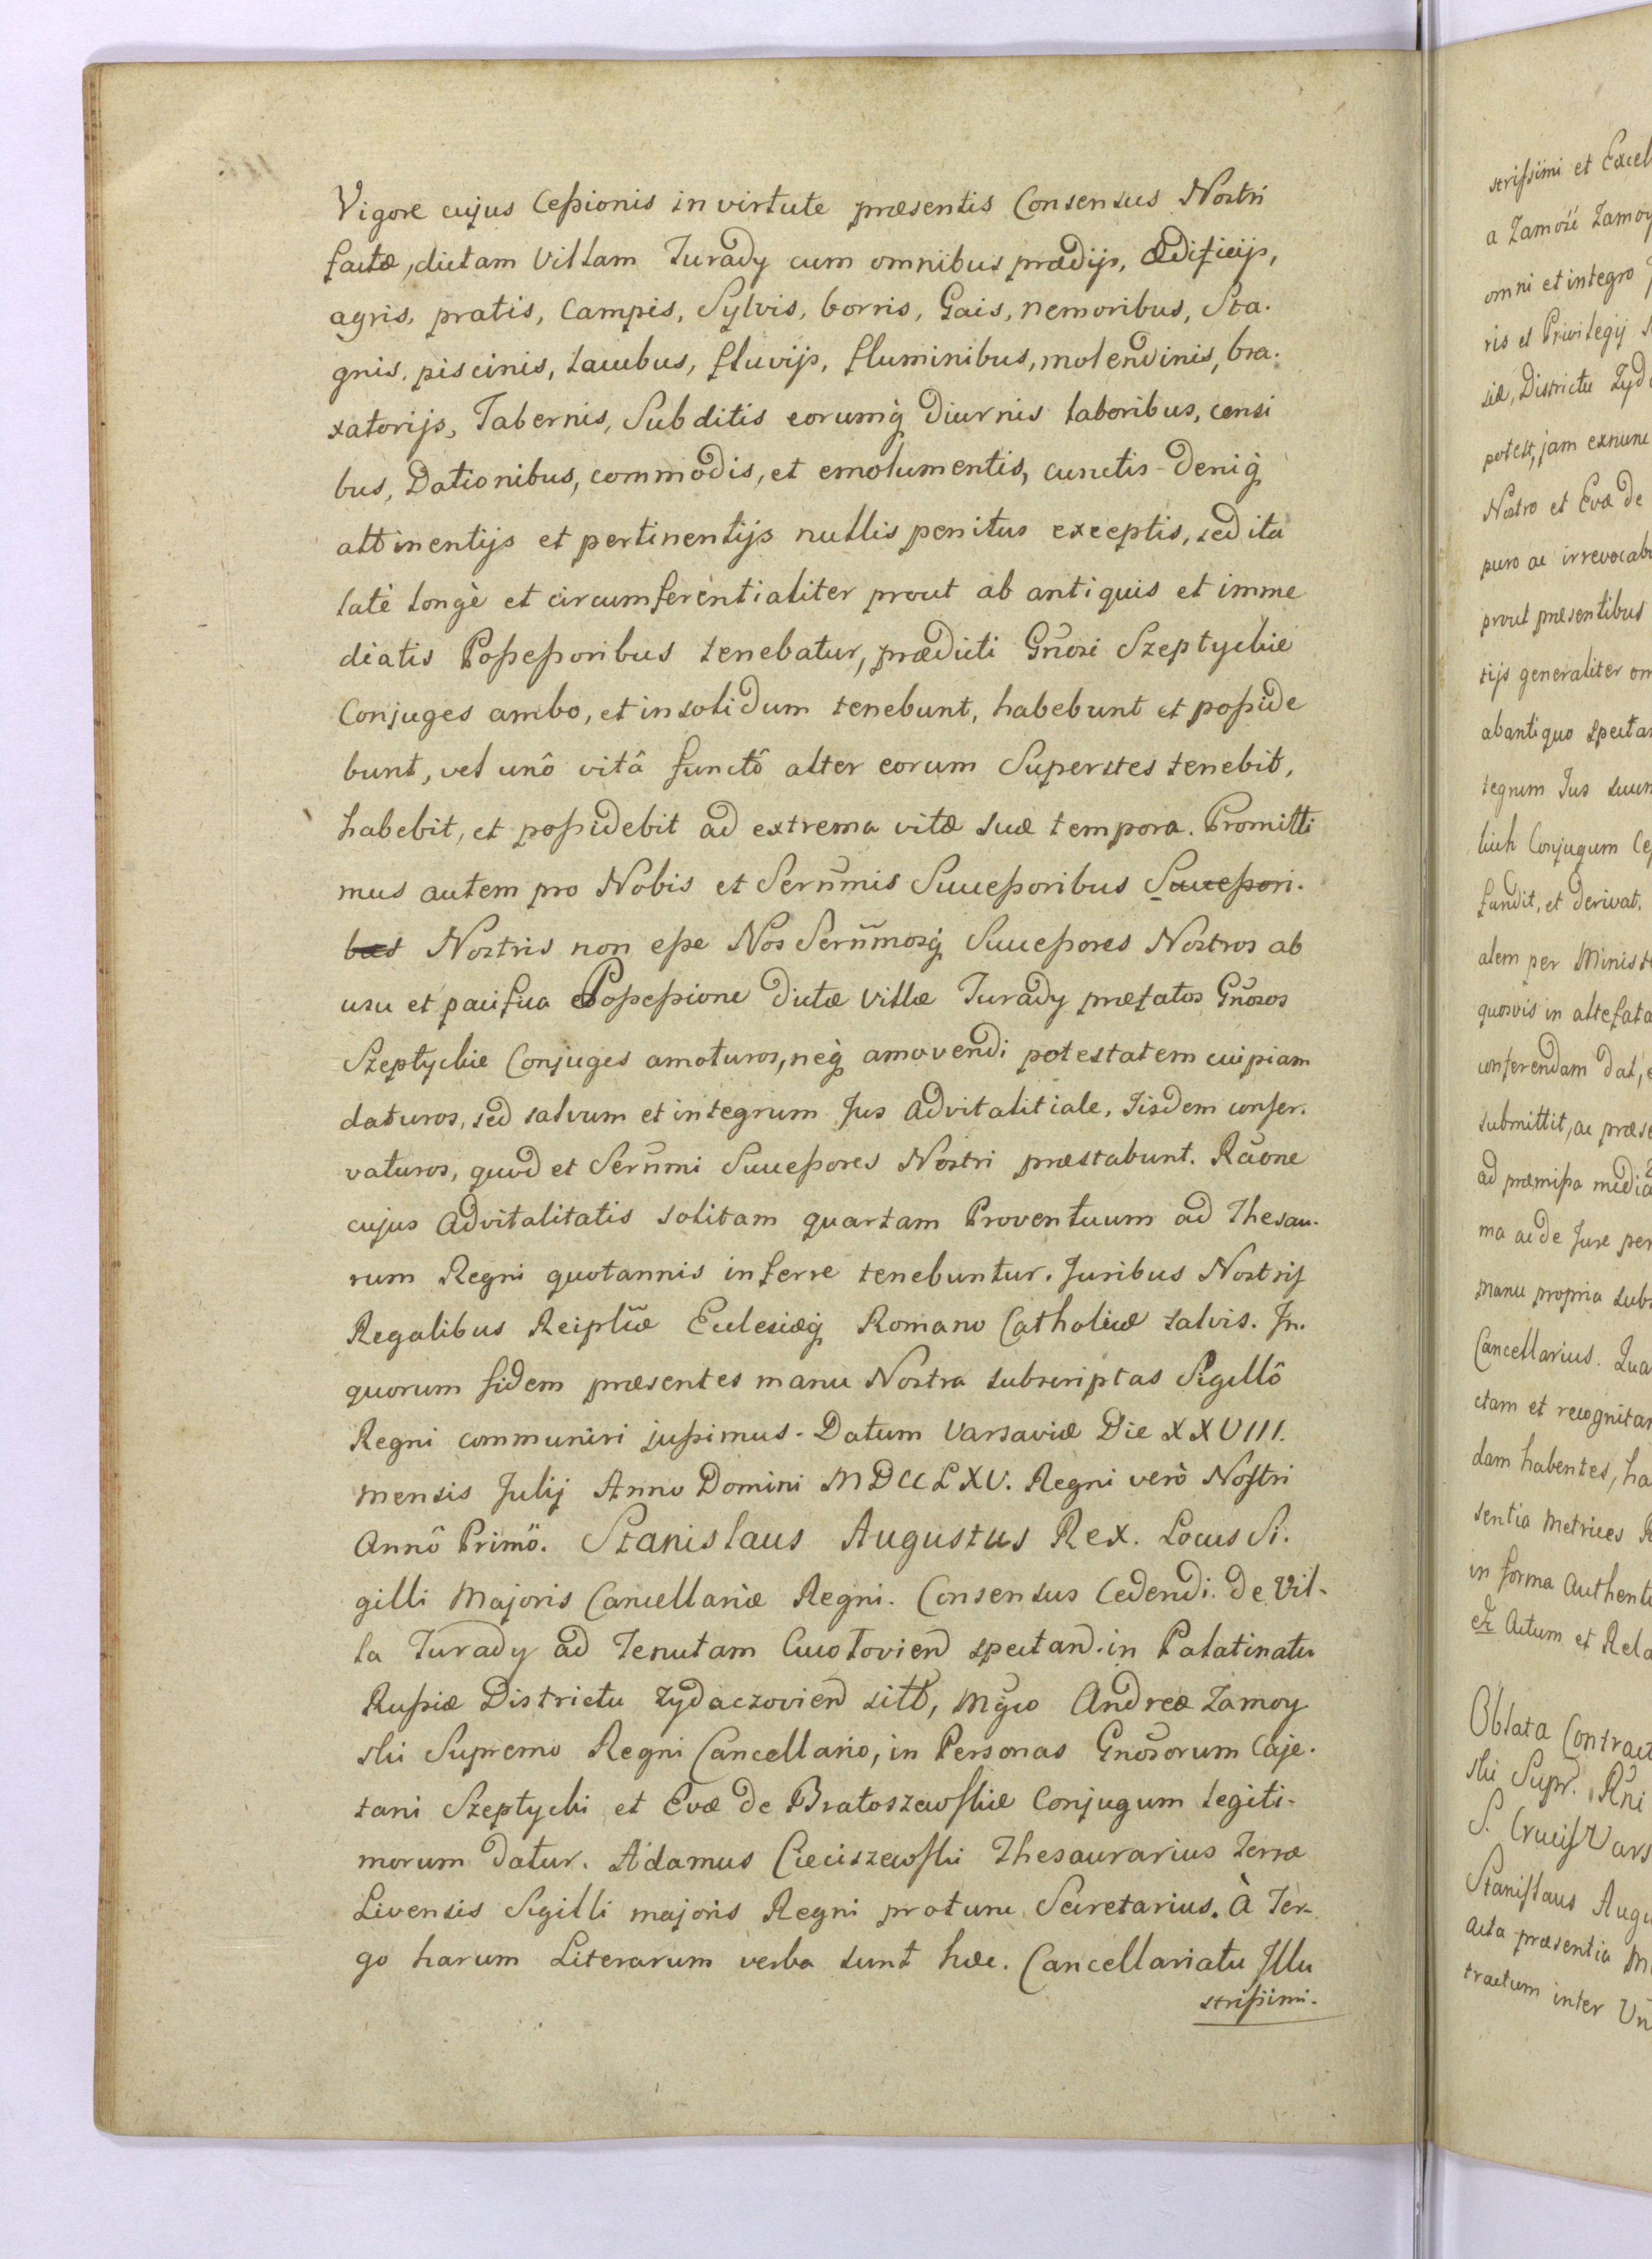 Vigore cujus Cessionis in virtute præsentis Consensus Nostri
factæ, dictam Villam Turady cum omnibus prædijs, Ædificijs,
agris, pratis, Campis, Sylvis, borris, Gais, nemoribus, Sta-
gnis, piscinis, lacubus, fluvijs, fluminibus, molendinis, bra-
xatorijs, Tabernis, Subditis eorumq́ Diurnis laboribus, censi
bus, Dationibus, commodis, et emolumentis, cunctis Deniq́
attinentijs et pertinentijs nullis penitus exceptis, sed ita
latè longè et circumferentialiter prout ab antiquis et imme
diatis Possessoribus tenebatur, prædicti Gn̄osi Szeptyckie
Conjuges ambo, et in solidum tenebunt, habebunt et posside
bunt, vel unô vitâ functô alter eorum Superstes tenebit,
habebit, et possidebit ad extrema vitæ suæ tempora. Promitti
mus autem pro Nobis et Sern̄mis Successoribus Successori-
bus Nostris non esse Nos Sern̄mosq́ Successores Nostros ab
usu et pacifica Possessione dictæ Villæ Turady præfatos Gn̄osos
Szeptyckie Conjuges amoturos, neq́ amovendi potestatem cuipiam
daturos, sed salvum et integrum Jus advitalitiale, Iisdem conser-
vaturos, quod et Sern̄mi Successores Nostri præstabunt. Rāone
cujus advitalitatis solitam quartam Proventuum ad Thesau-
rum Regni quotannis inferre tenebuntur. Juribus Nostris
Regalibus Reipl̄icæ Eclesiæq́ Romano Catholicæ salvis. In
quorum fidem præsentes manu Nostra subscriptas Sigillô
Regni communiri jussimus. Datum Varsaviæ Die XXVIII.
mensis Julij Anno Domini MDCCLXV. Regni verò Nostri
Annô Primô. Stanislaus Augustus Rex. Locus Si-
gilli Majoris Cancellariæ Regni. Consensus Cedendi de Vil-
la Turady ad Tenutam Cucułovien̄ spectan̄ in Palatinatu
Russiæ Districtu Zydaczovien̄ sitt̄, Mgco Andreæ Zamoy
ski Supremo Regni Cancellario, in Personas Gn̄osorum Caje-
tani Szeptycki et Evæ de Bratoszewskie Conjugum legiti-
morum datur. Adamus Cieciszewski Thesaurarius Terræ
Livensis Sigilli majoris Regni protunc Secretarius. À Ter-
go harum Literarum verba sunt hæc. Cancellariatu Illu
strissimi.
strissimi et Excel
a Zamość Zamoy
omni et integro
ris et Privilegij
siæ, Districtu Zyd
potest, jam exnunc
Nostro et Evæ de
puro ac irrevocab
prout præsentibus
tijs generaliter om
abantiquo specta
tegrum Jus suum
kich Conjugum Ces
fundit, et derivat.
alem per Minist
quosvis in altefata
conferendam dat,
submittit, ac præs
ad præmissa media
ma ac de Jure per
manu propria subs
Cancellarius. Qua
ctam et recognitam
dam habentes, ha
sentia Metrices R
in forma Authenti
etr̄ Actum et Rela
Oblata Contract
ski Supr. Rn̄i
S. Crucis Vars
Stanislaus Augu
Acta præsentia M
tractum inter Un